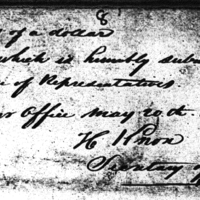 8
of a dollar
which is humbly subm
e of Representatives.
Office May 20th.
H Knox
Secretary of